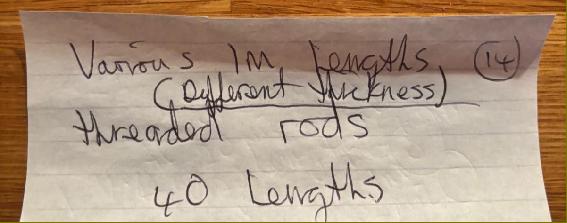 Various 1M Lengths (14)
(Different thickness)
threaded rods
40 Lengths